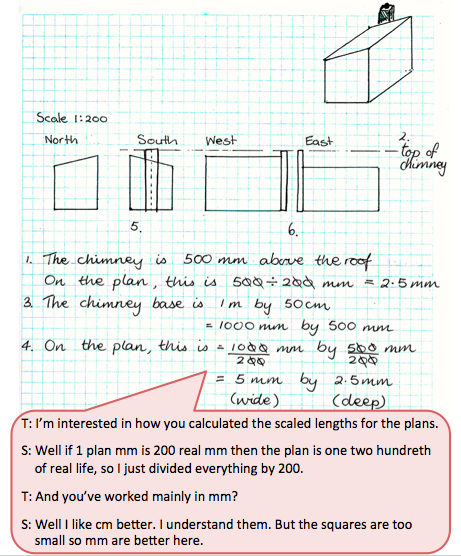 Scale 1:200
North South West East 2.
top of
chimney
5. 6.
1. The chimney is 500 mm above the roof
On the plan, this is 500 ÷ 200 mm = 2.5 mm
3. The chimney base is 1m by 50cm
= 1000 mm by 500 mm
4. On the plan, this is = 1000/200 mm by 500/200 mm
= 5 mm by 2.5mm
(wide) (deep)
T: I'm interested in how you calculated the scaled lengths for the plans.
S: Well if 1 plan mm is 200 real mm then the plan is one two hundreth
of real life, so I just divided everything by 200.
T: And you've worked mainly in mm?
S: Well I like cm better. I understand them. But the squares are too
small so mm are better here.